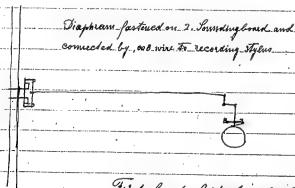 Diaphram fastened on 2. Sounding board and
connected by .008 wire to recording stylus